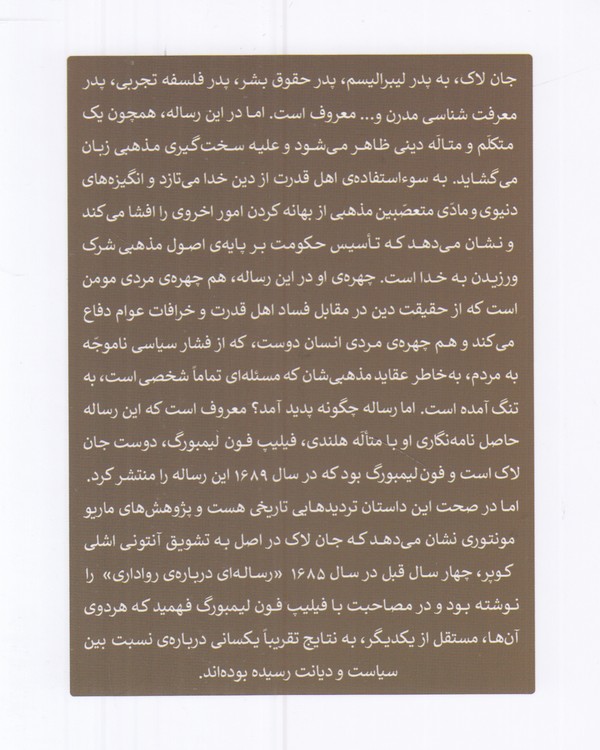 جان لاک، به پدر لیبرالیسم، پدر حقوق بشر، پدر فلسفه تجربی، پدر
معرفت شناسی مدرن و... معروف است. اما در این رساله، همچون یک
متکلّم و متالّه دینی ظاهر می‌شود و علیه سخت‌گیری مذهبی زبان
می‌گشاید. به سوءاستفاده‌ی اهل قدرت از دین خدا می‌تازد و انگیزه‌های
دنیوی و مادّی متعصّبین مذهبی از بهانه کردن امور اخروی را افشا می‌کند
و نشان می‌دهد که تأسیس حکومت بر پایه‌ی اصول مذهبی شرک
ورزیدن به خدا است. چهره‌ی او در این رساله، هم چهره‌ی مردی مومن
است که از حقیقت دین در مقابل فساد اهل قدرت و خرافات عوام دفاع
می‌کند و هم چهره‌ی مردی انسان دوست، که از فشار سیاسی ناموجّه
به مردم، به‌خاطر عقاید مذهبی‌شان که مسئله‌ای تماماً شخصی است، به
تنگ آمده است. اما رساله چگونه پدید آمد؟ معروف است که این رساله
حاصل نامه‌نگاری او با متألّه هلندی، فیلیپ فون لیمبورگ، دوست جان
لاک است و فون لیمبورگ بود که در سال ۱۶۸۹ این رساله را منتشر کرد.
اما در صحت این داستان تردیدهایی تاریخی هست و پژوهش‌های ماریو
مونتوری نشان می‌دهد که جان لاک در اصل به تشویق آنتونی اشلی
کوپر، چهار سال قبل در سال ۱۶۸۵ «رساله‌ای درباره‌ی رواداری» را
نوشته بود و در مصاحبت با فیلیپ فون لیمبورگ فهمید که هردوی
آن‌ها، مستقل از یکدیگر، به نتایج تقریباً یکسانی درباره‌ی نسبت بین
سیاست و دیانت رسیده بوده‌اند.